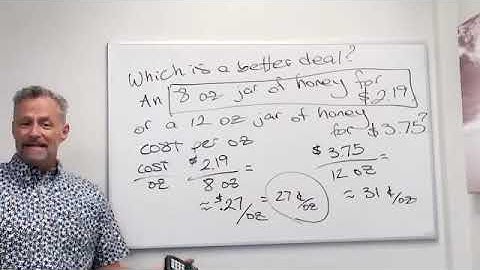 Which is a better deal?
An 8 oz jar of honey for $2.19
or a 12 oz jar of honey for $3.75?
cost per oz
cost/oz $2.19/8 oz =
≈ $.27/oz = 27¢/oz
$3.75/12 oz =
≈ 31¢/oz